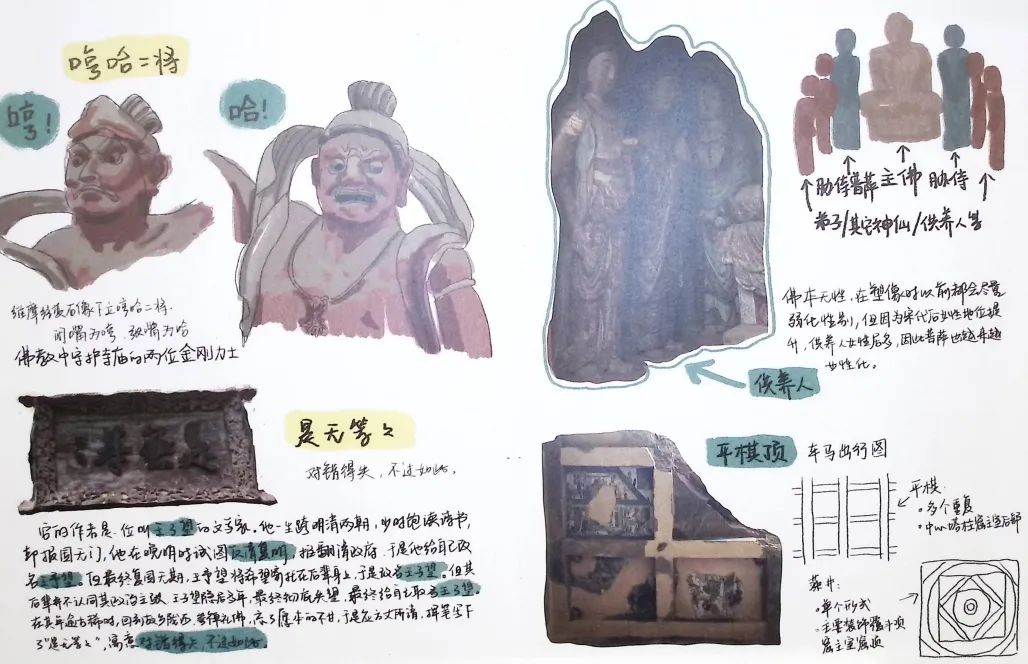 哼哈二将
哼！
哈！
维摩诘居石像下立哼哈二将.
闭嘴为哼 张嘴为哈
佛教中守护寺庙的两位金刚力士
是无等々
对错得失，不过如此。
官的作者是一位叫王了望的文学家。他一生跨明清两朝，少时饱读诗书，
却报国无门，他在晚明时试图反清复明，推翻清政府，于是他给自己改
名王予望。但最终复国无期，王予望将希望寄托在后辈身上，于是改名王子望。但其
后辈并不认同其政治主张，王子望隐居多年，最终彻底失望，最终给自己取名王了望。
在其年过古稀时，回到故乡陇西，参禅礼佛，忘了原本的不甘，于是应方丈所请，挥笔写下
了“是无等々”，寓意对错得失，不过如此。
胁侍菩萨 主佛 胁侍
弟子/其它神仙/供养人等
佛本无性，在塑像时以前都会尽量
弱化性别，但因为宋代后女性地位提
升，供养人女性居多，因此菩萨也越来越
女性化。
供养人
平棋顶
车马出行图
平棋.
·多个重复
·中心塔柱窟主室后部
藻井：
·单个形式
·主要装饰覆斗顶
窟主室窟顶